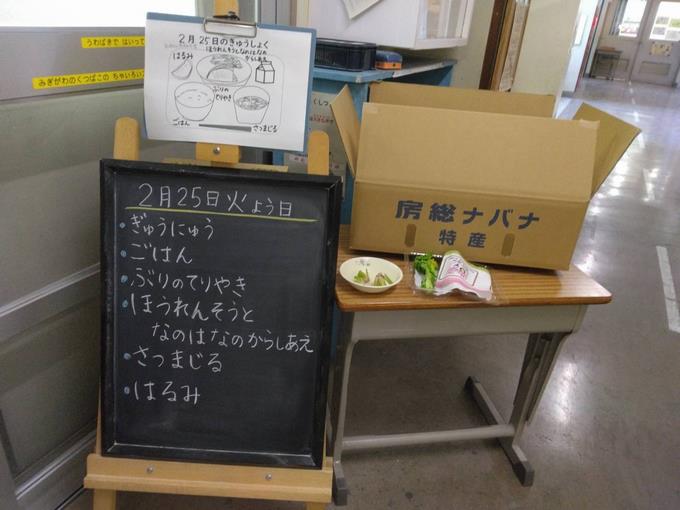 うわばきで はいって
みぎがわのくつばこの ちゃいろい
2月25日のきゅうしょく
ほうれんそうとなのはなの
からしあえ
はるみ
ぶりの
てりやき
ごはん
さつまじる
2月25日火よう日
ぎゅうにゅう
ごはん
ぶりのてりやき
ほうれんそうと
なのはなのからしあえ
さつまじる
はるみ
房総ナバナ
特産